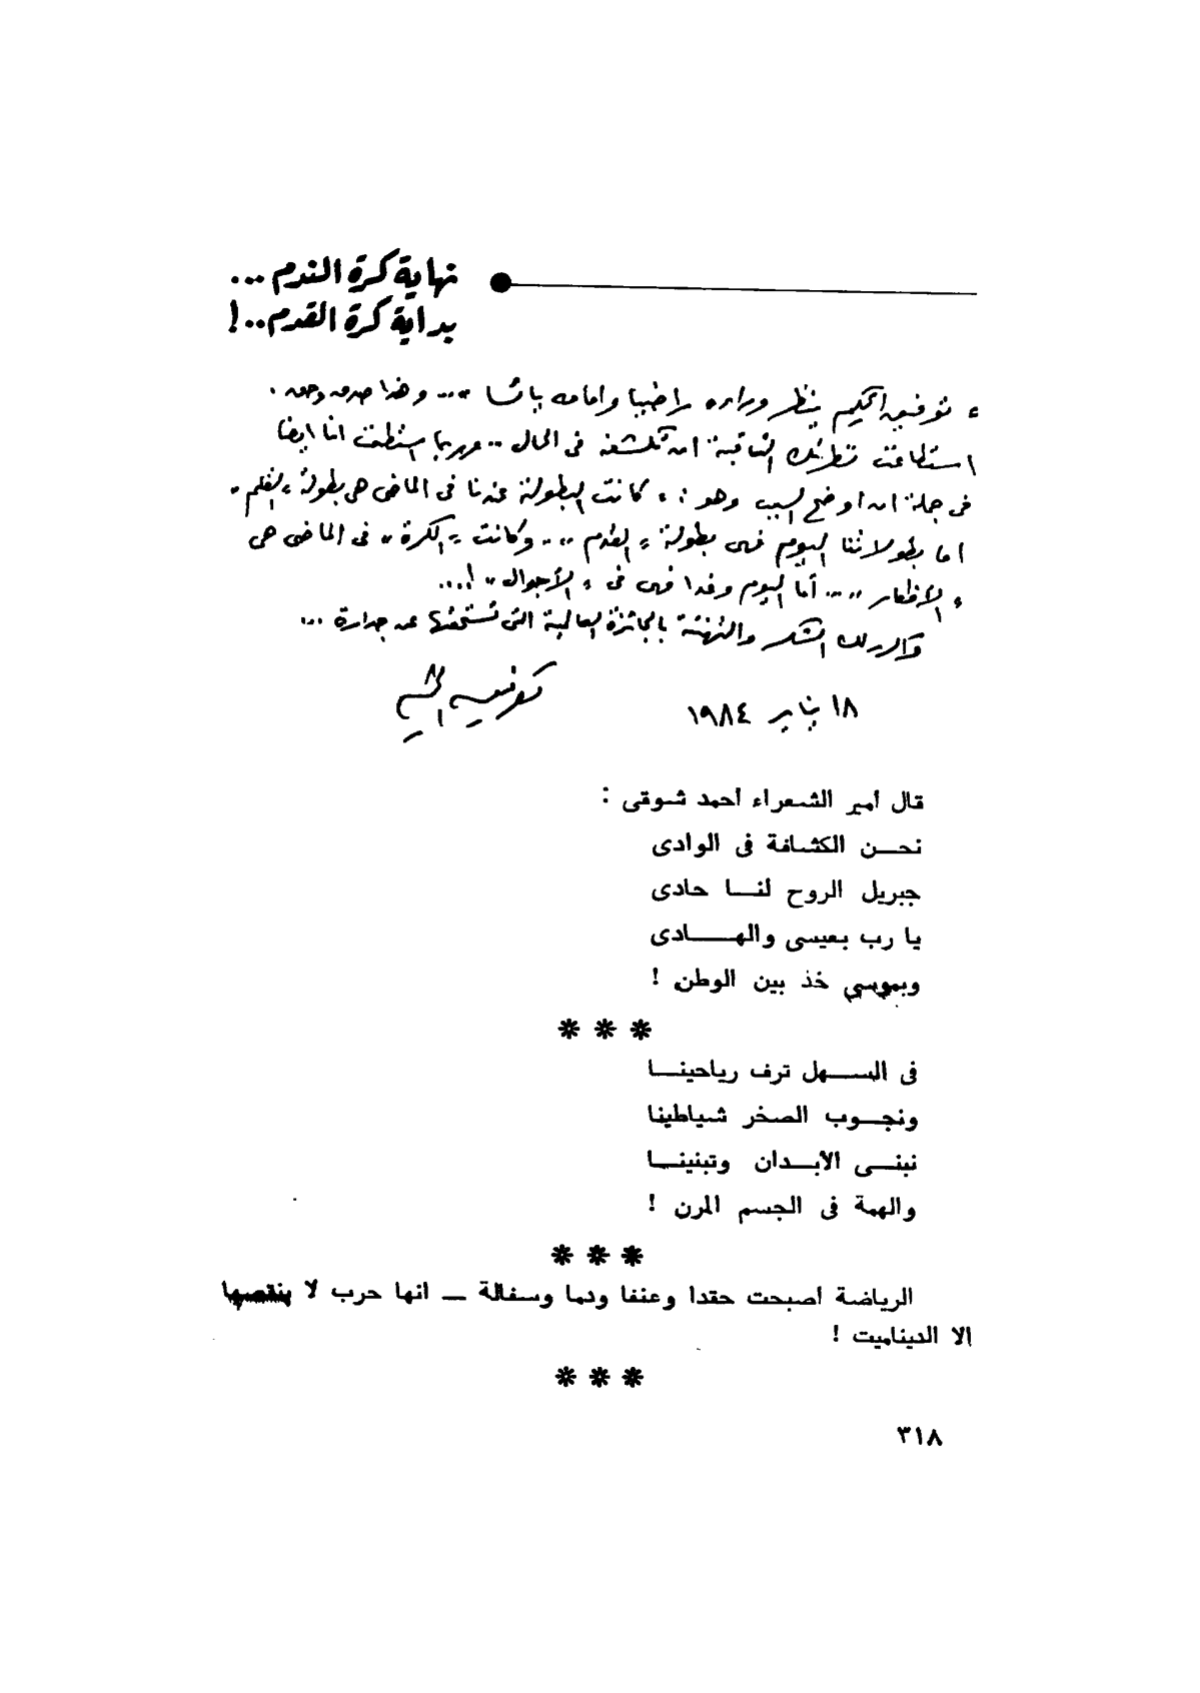 نهاية كرة الندم ...
بداية كرة القدم..!
« توفيق الحكيم ينظر وراءه راضيا وأمامه يائسا » ... وهذا صدق وحق .
استطاعت نظرتك الثاقبة ان تكشفه فى الحال .. وربما استطعت انا ايضا
فى جملة ان اوضح السبب وهو : « كانت البطولة عندنا فى الماضى هى بطولة « القلم »
اما بطولاتنا اليوم فهى بطولة « القدم » .. وكانت « الكرة » فى الماضى هى
« الأفكار » ... أما اليوم وغدا فهى فى « الأجوال » !...
الشكر والتهنئة بالجائزة العالمية التى تستحقها عن جدارة ...
١٨ يناير ١٩٨٤
توفيق الحكيم
قال أمير الشعراء أحمد شوقى :
نحـــن الكشافة فى الوادى
جبريل الروح لنـــا حادى
يا رب بعيسى والهـــــادى
وبموسى خذ بين الوطن !
* * *
فى السـهل ترف رياحينـــا
ونجـــوب الصخر شياطينا
نبنـــى الابـــدان وتبنينـــا
والهمة فى الجسم المرن !
* * *
الرياضة أصبحت حقدا وعنفا ودما وسفالة — انها حرب لا ينقصها
الا الديناميت !
* * *
٣١٨